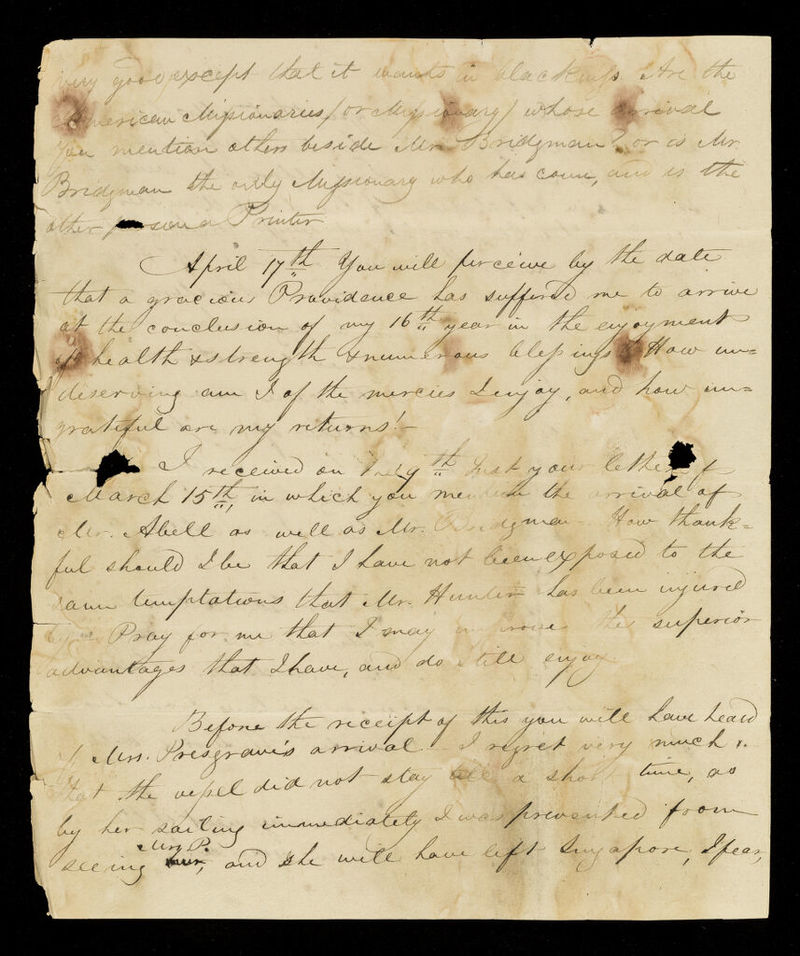 very good, except that it wants in blackness. Are the
American Missionaries (or Missionary) whose arrival
you mention others beside Mr. Bridgman? or is Mr.
Bridgman the only Missionary who has come, and is the
other person a Printer
April 17th You will perceive by the date
that a gracious Providence has suffered me to arrive
at the conclusion of my 16th year in the enjoyment
of health & strength & numerous blessings. How un=
deserving am I of the mercies I enjoy, and how un=
grateful are my returns!—
I received on the th Inst your letter of
March 15th, in which you mention the arrival of
Mr. Abell as well as Mr. Bridgman. How thank=
ful should I be that I have not been exposed to the
same temptations that Mr. Hunter has been injured
by. Pray for me that I may improve the superior
advantages that I have, and do still enjoy
Before the receipt of this you will have heard
of Mrs. Presgrave's arrival. I regret very much
that the vessel did not stay a short time, as
by her sailing immediately I was prevented from
seeing Mrs. P., and she will have left Singapore, I fear,